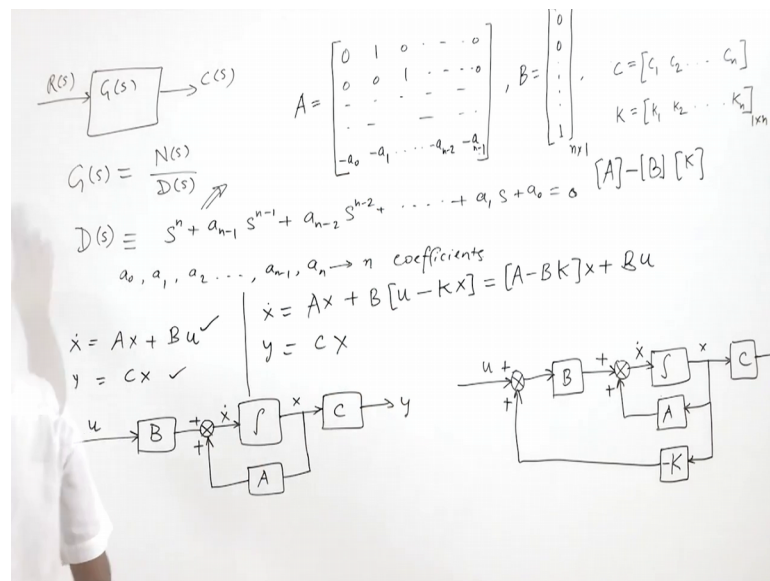 R(s) G(s) C(s)
G(s) = N(s) / D(s)
A = [ 0 1 0 . - - . 0
0 0 1 . - - . 0
- . . . .
. - - .
-a₀ -a₁ . . . . -aₙ₋₂ -aₙ₋₁ ]
, B = [ 0
0
.
.
.
1 ]ₙₓ₁ ,
C = [C₁ C₂ . . . Cₙ]
K = [K₁ K₂ . . . . Kₙ]₁ₓₙ
[A] – [B] [K]
D(s) ≡ sⁿ + aₙ₋₁ sⁿ⁻¹ + aₙ₋₂ sⁿ⁻² + . . . . . . + a₁ s + a₀ = 0
a₀, a₁, a₂ . . . , aₙ₋₁, aₙ → n coefficients
ẋ = Ax + Bu ✓
y = Cx ✓
ẋ = Ax + B[u – Kx] = [A – BK]x + Bu
y = Cx
u B + + ẋ ∫ x C y
A
u + + B + + ẋ ∫ x C
A
-K